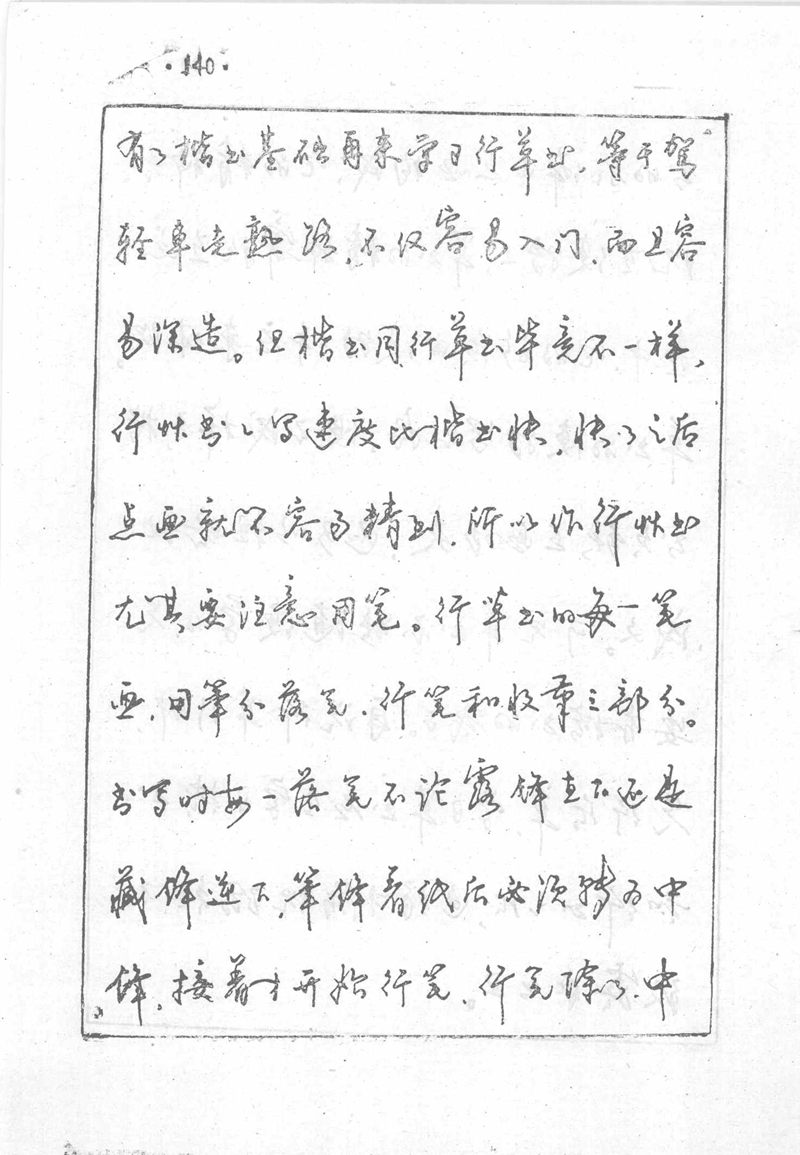 ·140·
有了楷书基础再来学习行草书，等于驾
轻车走熟路，不仅容易入门，而且容
易深造。但楷书同行草书毕竟不一样，
行草书书写速度比楷书快，快了之后
点画就不容易精到，所以作行草书
尤其要注意用笔。行草书的每一笔
画，用笔分落笔、行笔和收笔三部分。
书写时每一落笔不论露锋直下还是
藏锋逆下，笔锋着纸后必须转为中
锋，接着才开始行笔。行笔除了中